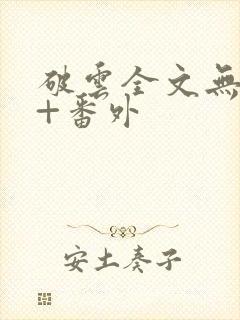 破雲全文無
+番外
安土奏子